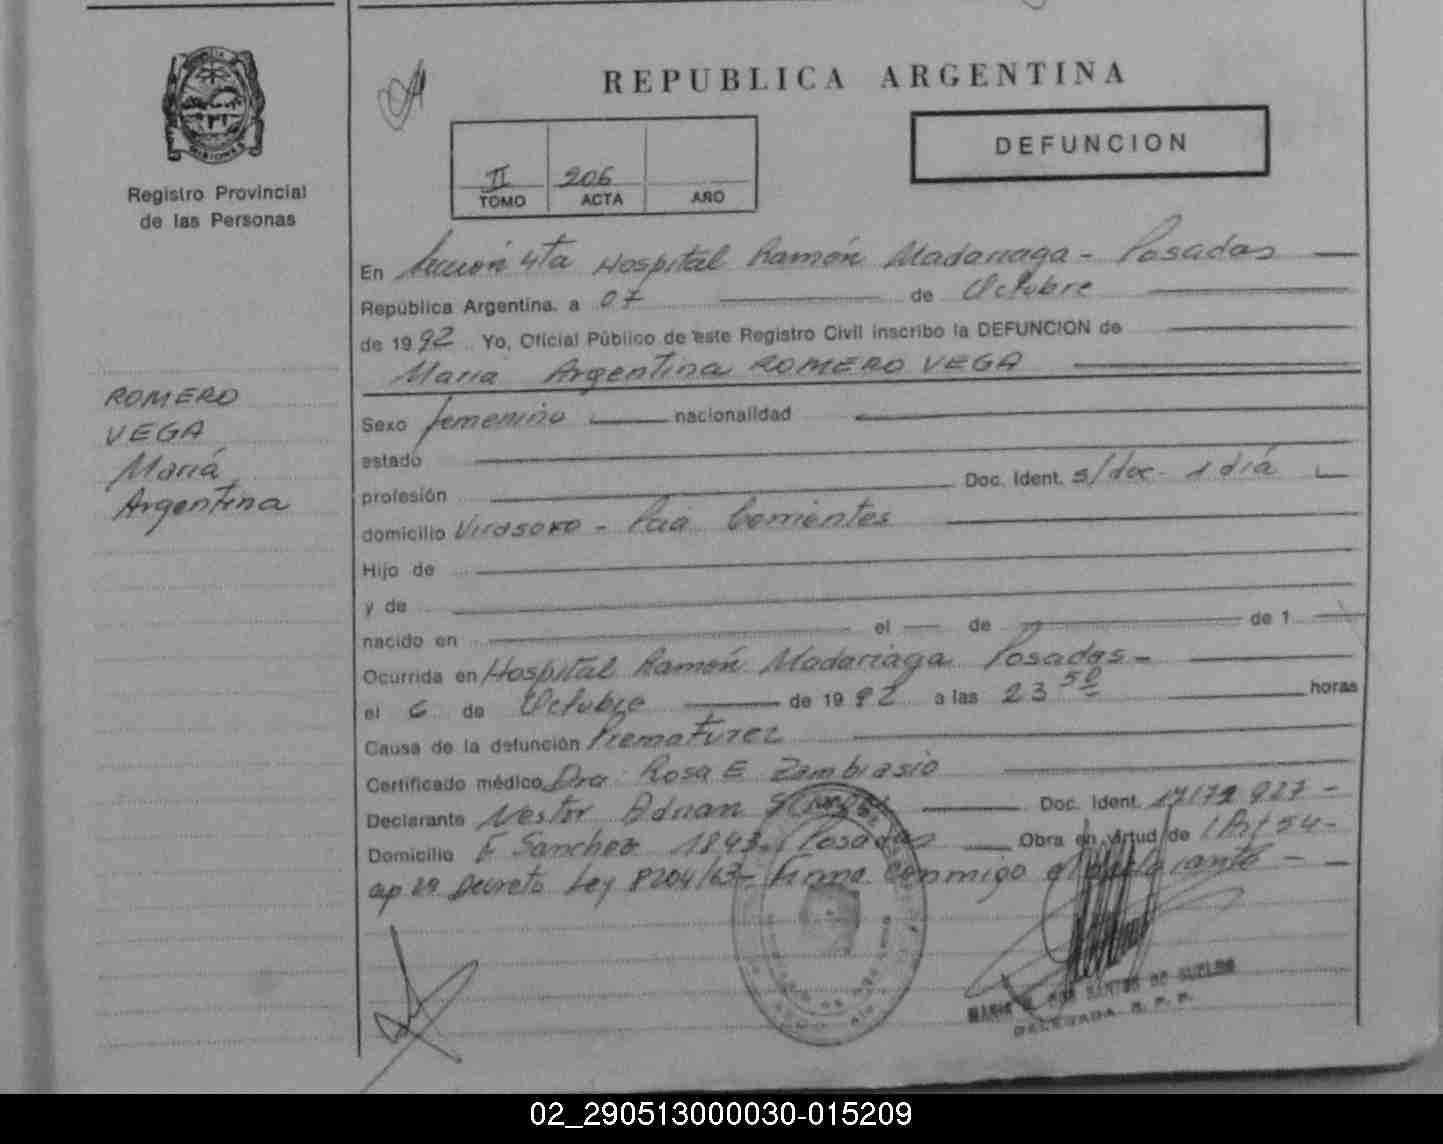 REPUBLICA ARGENTINA
DEFUNCION
MISIONES
Registro Provincial
de las Personas
II 206
TOMO ACTA AÑO
En Sección 4ta Hospital Ramón Madariaga - Posadas
República Argentina. a 07 de Octubre
de 1992 Yo, Oficial Público de este Registro Civil inscribo la DEFUNCION de
Maria Argentina ROMERO VEGA
ROMERO
VEGA
Mariá
Argentina
Sexo femenino nacionalidad
estado
profesión Doc. Ident. s/doc - 1 día
domicilio Virasoro - Pcia Corrientes
Hijo de
y de
nacido en el de de 1
Ocurrida en Hospital Ramón Madariaga Posadas -
el 6 de Octubre de 1992 a las 23 50 horas
Causa de la defunción Prematurez
Certificado médico Dra. Rosa E Zambiasio
Declarante Nestor Adrian Doc. Ident. 927 -
Domicilio F Sanchez 1843 - Posadas Obra en virtud de l Art 54 -
ap 2º Decreto Ley 8204/63 - Firma conmigo el declarante -
DOS SANTOS DE
DELEGADA R. P. P.
02_290513000030-015209